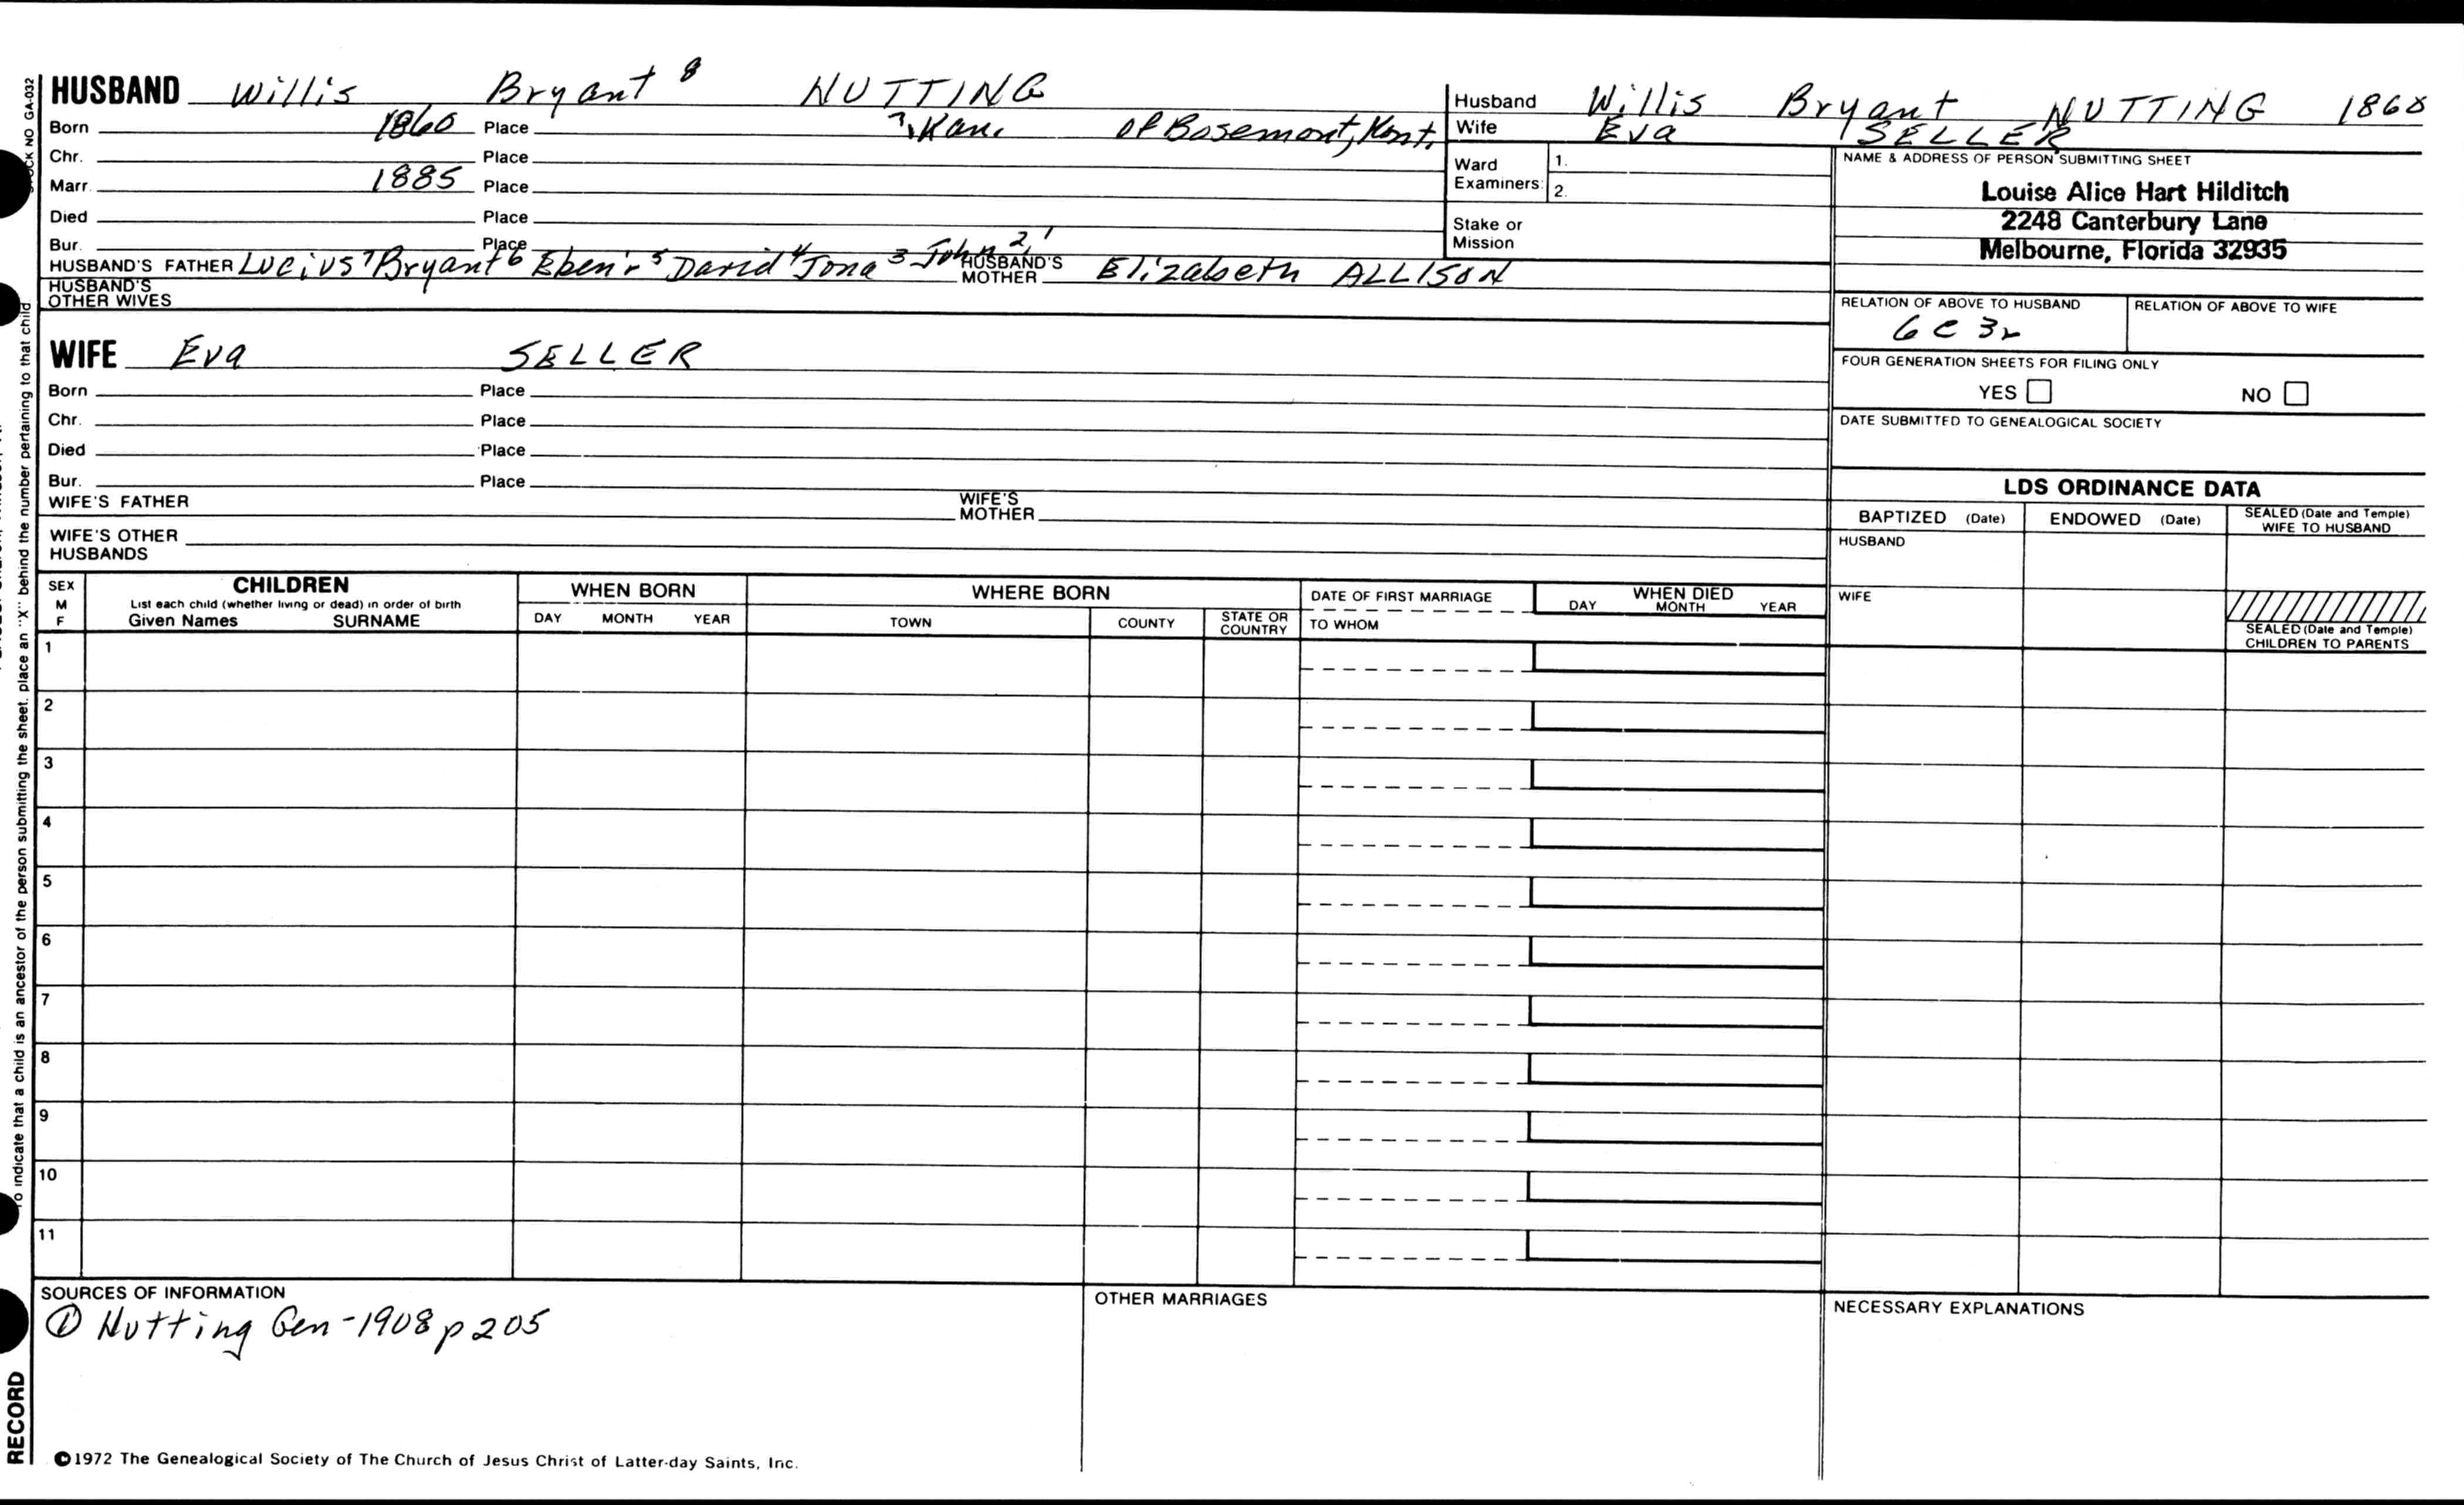 HUSBAND Willis Bryant 8 NUTTING
Born 1860 Place ?, Kan. of Bosemont, Mont.
Chr. Place
Marr. 1885 Place
Died Place
Bur. Place
HUSBAND'S FATHER Lucius 7 Bryant 6 Eben'r 5 David 4 Jona 3 John 2, 1 HUSBAND'S MOTHER Elizabeth ALLISON
HUSBAND'S OTHER WIVES
WIFE Eva SELLER
Born Place
Chr. Place
Died Place
Bur. Place
WIFE'S FATHER WIFE'S MOTHER
WIFE'S OTHER HUSBANDS
Husband Willis Bryant NUTTING 1860
Wife Eva SELLER
Ward Examiners: 1. 2.
Stake or Mission
NAME & ADDRESS OF PERSON SUBMITTING SHEET
Louise Alice Hart Hilditch
2248 Canterbury Lane
Melbourne, Florida 32935
RELATION OF ABOVE TO HUSBAND RELATION OF ABOVE TO WIFE
6 C 3r
FOUR GENERATION SHEETS FOR FILING ONLY
YES NO
DATE SUBMITTED TO GENEALOGICAL SOCIETY
LDS ORDINANCE DATA
BAPTIZED (Date) ENDOWED (Date) SEALED (Date and Temple) WIFE TO HUSBAND
HUSBAND
WIFE
SEALED (Date and Temple) CHILDREN TO PARENTS
SEX M F CHILDREN WHEN BORN WHERE BORN DATE OF FIRST MARRIAGE WHEN DIED
List each child (whether living or dead) in order of birth
Given Names SURNAME DAY MONTH YEAR TOWN COUNTY STATE OR COUNTRY TO WHOM DAY MONTH YEAR
1
2
3
4
5
6
7
8
9
10
11
SOURCES OF INFORMATION
① Nutting Gen-1908 p 205
OTHER MARRIAGES
NECESSARY EXPLANATIONS
©1972 The Genealogical Society of The Church of Jesus Christ of Latter-day Saints, Inc.
STOCK NO GA-032
To indicate that a child is an ancestor of the person submitting the sheet, place an "X" behind the number pertaining to that child
RECORD